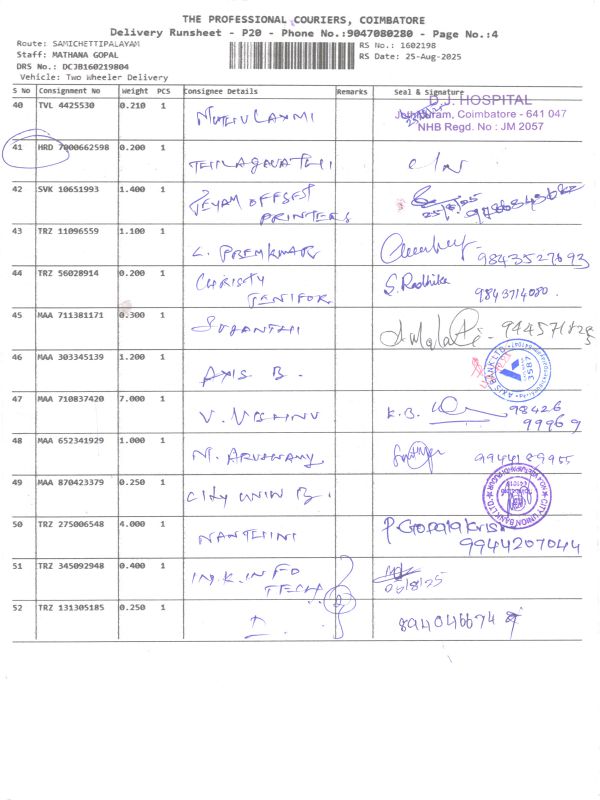 THE PROFESSIONAL COURIERS, COIMBATORE
Delivery Runsheet - P20 - Phone No.:9047080280 - Page No.:4
Route: SAMICHETTIPALAYAM
RS No.: 1602198
Staff: MATHANA GOPAL
RS Date: 25-Aug-2025
DRS No.: DCJB160219804
Vehicle: Two Wheeler Delivery
S No Consignment No Weight PCS Consignee Details Remarks Seal & Signature
40 TVL 4425530 0.210 1 MUTHU LAXMI
D.J. HOSPITAL
Coimbatore - 641 047
NHB Regd. No : JM 2057
41 HRD 7000662598 0.200 1 THILAGAVATHI
42 SVK 10651993 1.400 1 JEYAM OFFSET
PRINTERS
25/8/25
43 TRZ 11096559 1.100 1 L. PREMKUMAR 9843527693
44 TRZ 56028914 0.200 1 CHRISTY
JENIFOR
S. Radhika 9843714080.
45 MAA 711381171 0.300 1 SUGANTHI
46 MAA 303345139 1.200 1 AXIS B.
AXIS BANK LTD
3587
47 MAA 710837420 7.000 1 V. VISHNU K.B. 98426
99969
48 MAA 652341929 1.000 1 M. ARUSWAMY 9944189955
49 MAA 870423379 0.250 1 CITY UNION B.
CITY UNION BANK LTD
50 TRZ 275006548 4.000 1 NANTHINI P Gopalakris
9944207044
51 TRZ 345092948 0.400 1 M.K. INFO
TECH
52 TRZ 131305185 0.250 1